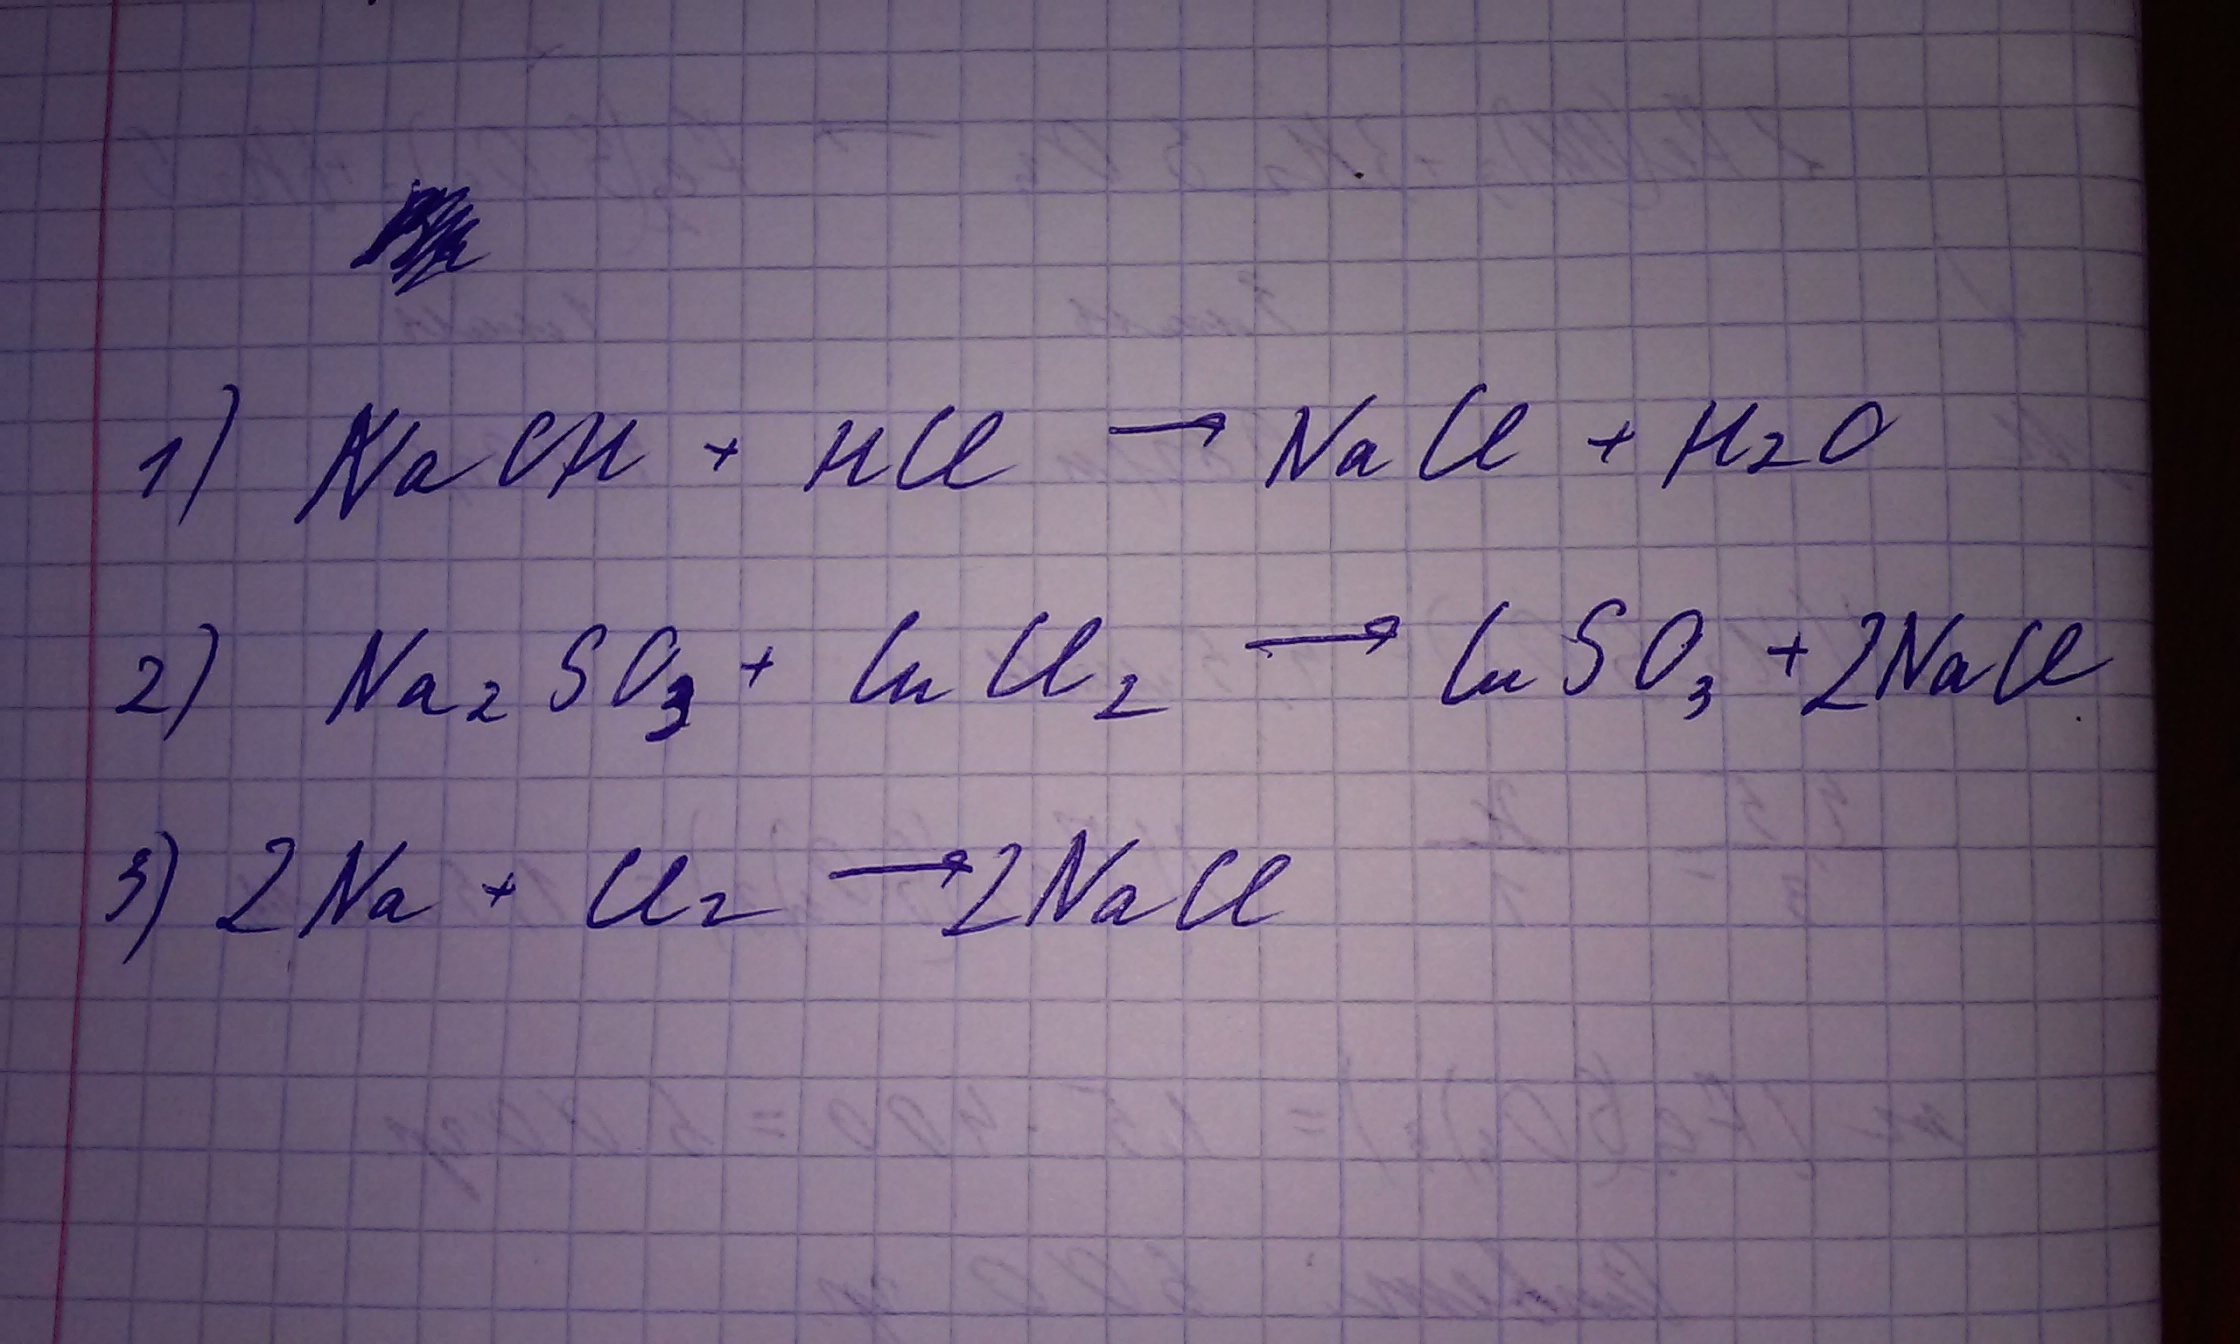 1) NaOH + HCl → NaCl + H₂O
2) Na₂SO₃ + CuCl₂ → CuSO₃ + 2NaCl
3) 2Na + Cl₂ → 2NaCl